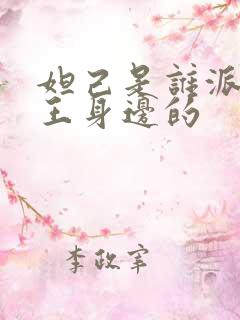 妲己是誰派
王身邊的
李政宰